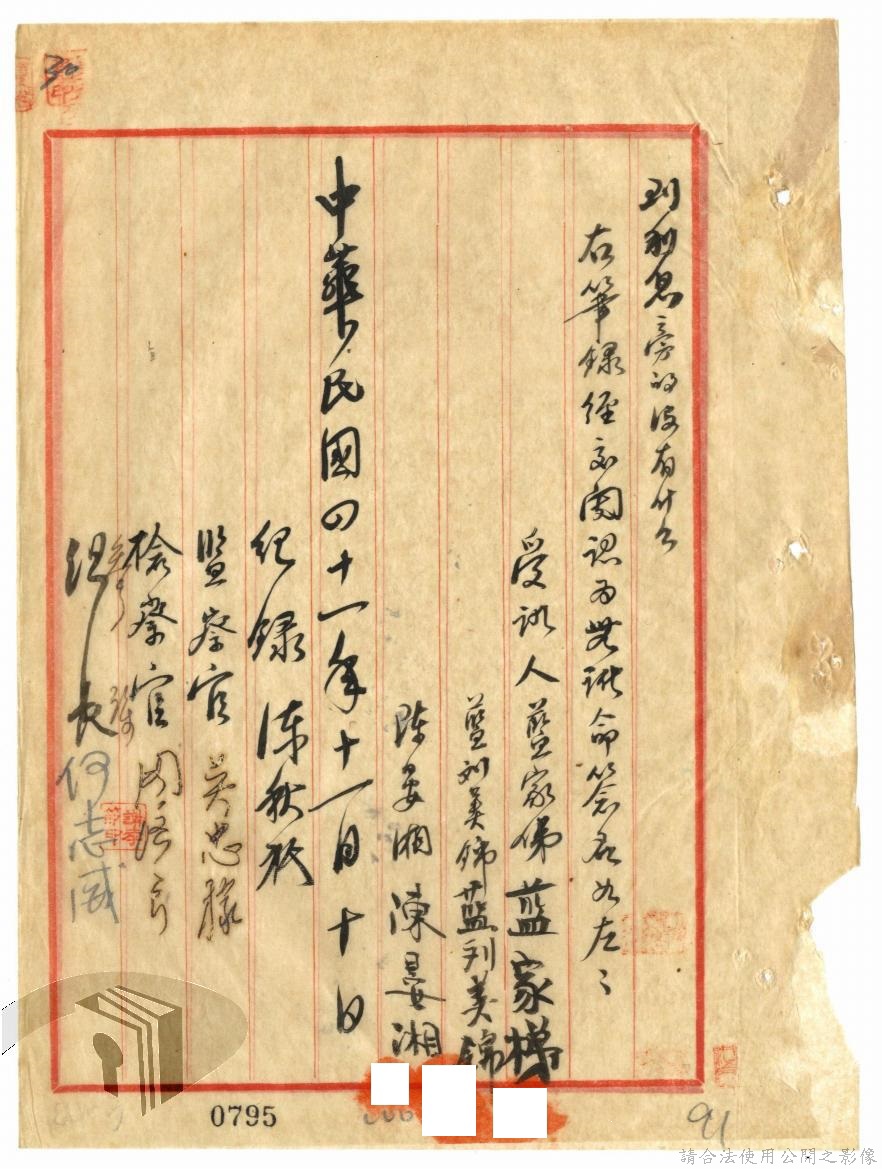 到利息旁的沒有什么
右筆錄經交閱認為無訛命簽名如左:
受訊人藍家俤藍家梯
藍刘美錦藍刘美錦
陈晏湘陳晏湘
中華民國四十一年十一月十日
紀錄 陳秋
監察官 吳忠
檢察官 周
組長何志威
30
0795
91
請合法使用公開之影像